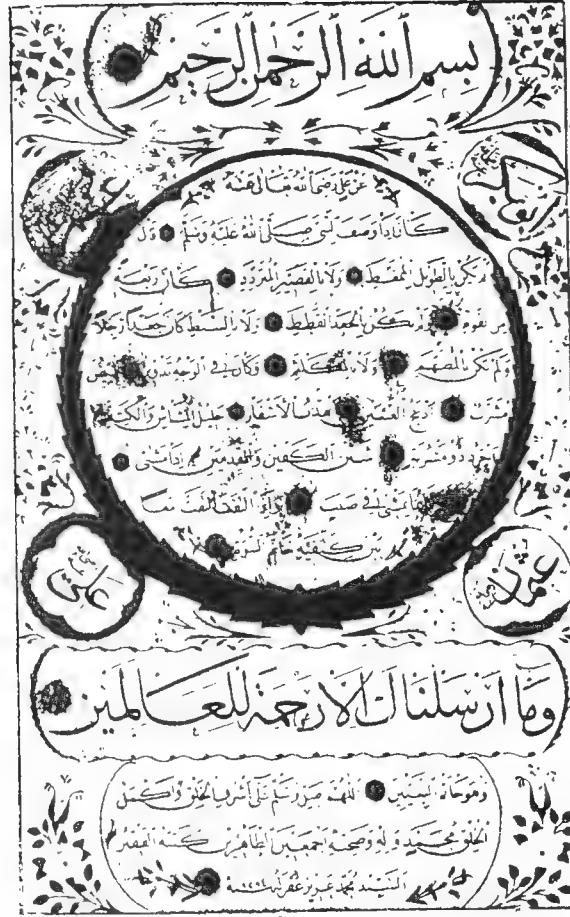 بسم الله الرحمن الرحيم
ابوبكر
عمر
عن علي رضي الله تعالى عنه
كان اذا وصف النبي صلى الله عليه وسلم قال
لم يكن بالطويل الممغط ولا بالقصير المتردد وكان ربعة
من القوم ولم يكن بالجعد القطط ولا بالسبط كان جعدا رجلا
ولم يكن بالمطهم ولا بالمكلثم وكان في الوجه تدوير ابيض
مشرب ادعج العينين اهدب الاشفار جليل المشاش والكتد
اجرد ذو مسربة شثن الكفين والقدمين اذا مشى
يمشي في صبب واذا التفت التفت معا
بين كتفيه خاتم النبوة
عثمان
علي
وما ارسلناك الا رحمة للعالمين
وهو خاتم النبيين اللهم صل وسلم على اشرف الخلق واكمل
الخلق محمد وآله وصحبه اجمعين الطاهرين كتبه الفقير
السيد محمد